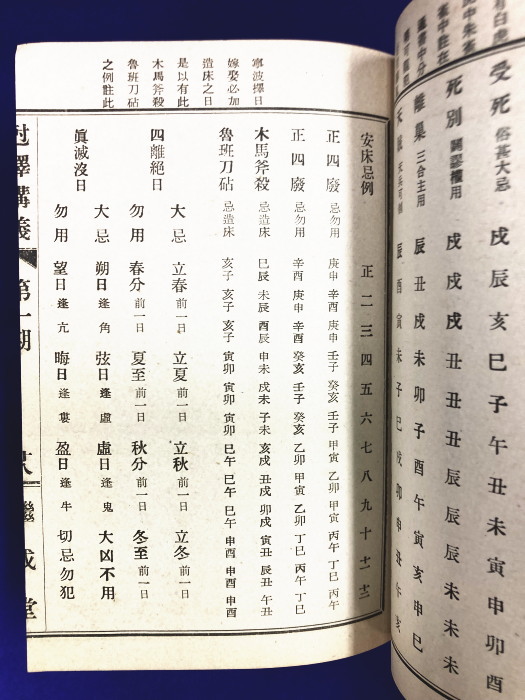 有白虎
受死 俗甚大忌 戌辰亥巳子午丑未寅申卯酉
死別 戌戌戌丑丑丑辰辰辰未未未
離巢 三合主用 辰丑戌未卯子酉午寅亥申巳
辰酉寅未子巳戌卯申丑午亥
寧波擇日
嫁娶必加
造床之日
是以有此
木馬斧殺
魯班刀砧
之例註此
安床忌例 正二三四五六七八九十十一十二
正四廢 忌勿用 庚申 辛酉 庚申 壬子 癸亥 壬子 甲寅 乙卯 甲寅 丙午 丁巳 丙午
正四廢 忌勿用 辛酉 庚申 辛酉 癸亥 壬子 癸亥 乙卯 甲寅 乙卯 丁巳 丙午 丁巳
木馬斧殺 忌造床 巳辰 未辰 酉辰 申未 戌未 子未 亥戌 丑戌 卯戌 寅丑 辰丑 午丑
魯班刀砧 忌造床 亥子 亥子 亥子 寅卯 寅卯 寅卯 巳午 巳午 巳午 申酉 申酉 申酉
四離絕日
大忌 立春前一日 立夏前一日 立秋前一日 立冬前一日
勿用 春分前一日 夏至前一日 秋分前一日 冬至前一日
眞滅沒日
大忌 朔日逢角 弦日逢虛 虛日逢鬼 大凶不用
勿用 望日逢亢 晦日逢婁 盈日逢牛 切忌勿犯
尅擇講義 第一期 十八 繼成堂